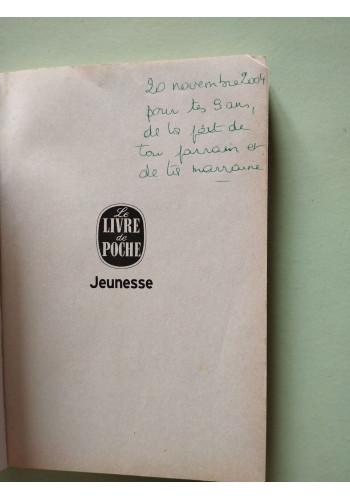 20 novembre 2004
pour tes 9 ans,
de la part de
ton parrain et
de ta marraine
Le
LIVRE
de
POCHE
Jeunesse